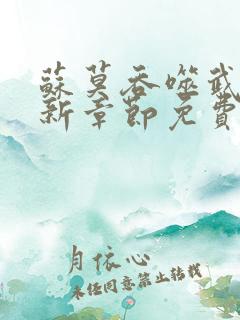 蘇莫吞噬武
新章節免費
月依心
未经同意禁止转载